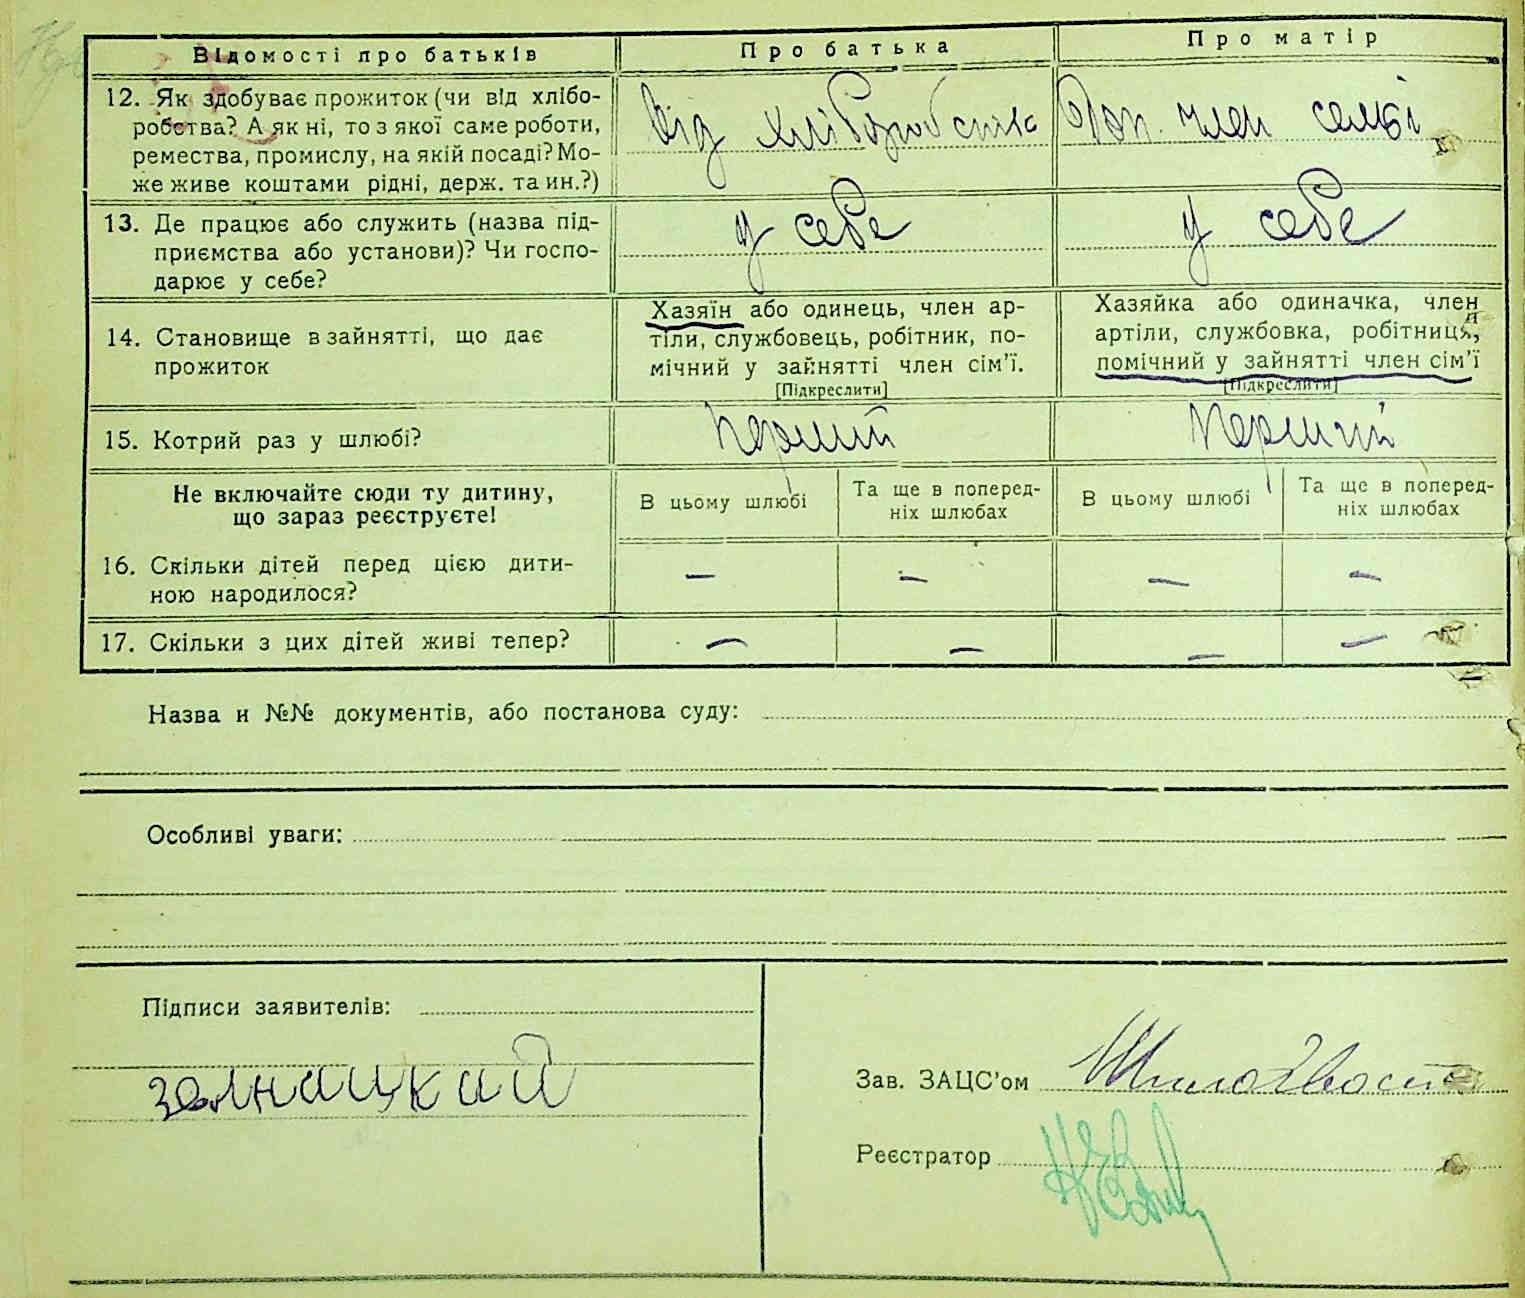 Відомості про батьків
Про батька
Про матір
12. Як здобуває прожиток (чи від хлібо-
робства? А як ні, то з якої саме роботи,
ремества, промислу, на якій посаді? Мо-
же живе коштами рідні, держ. та ин.?)
від хліборобства
член семьі
13. Де працює або служить (назва під-
приємства або установи)? Чи госпо-
дарює у себе?
у себе
у себе
14. Становище в зайнятті, що дає
прожиток
Хазяїн або одинець, член ар-
тіли, службовець, робітник, по-
мічний у зайнятті член сім'ї.
[Підкреслити]
Хазяйка або одиначка, член
артіли, службовка, робітниця,
помічний у зайнятті член сім'ї
[Підкреслити]
15. Котрий раз у шлюбі?
Перший
Перший
Не включайте сюди ту дитину,
що зараз реєструєте!
В цьому шлюбі
Та ще в поперед-
ніх шлюбах
В цьому шлюбі
Та ще в поперед-
ніх шлюбах
16. Скільки дітей перед цією дити-
ною народилося?
— — — —
17. Скільки з цих дітей живі тепер?
— — — —
Назва и №№ документів, або постанова суду:
Особливі уваги:
Підписи заявителів:
Зав. ЗАЦС'ом
Реєстратор